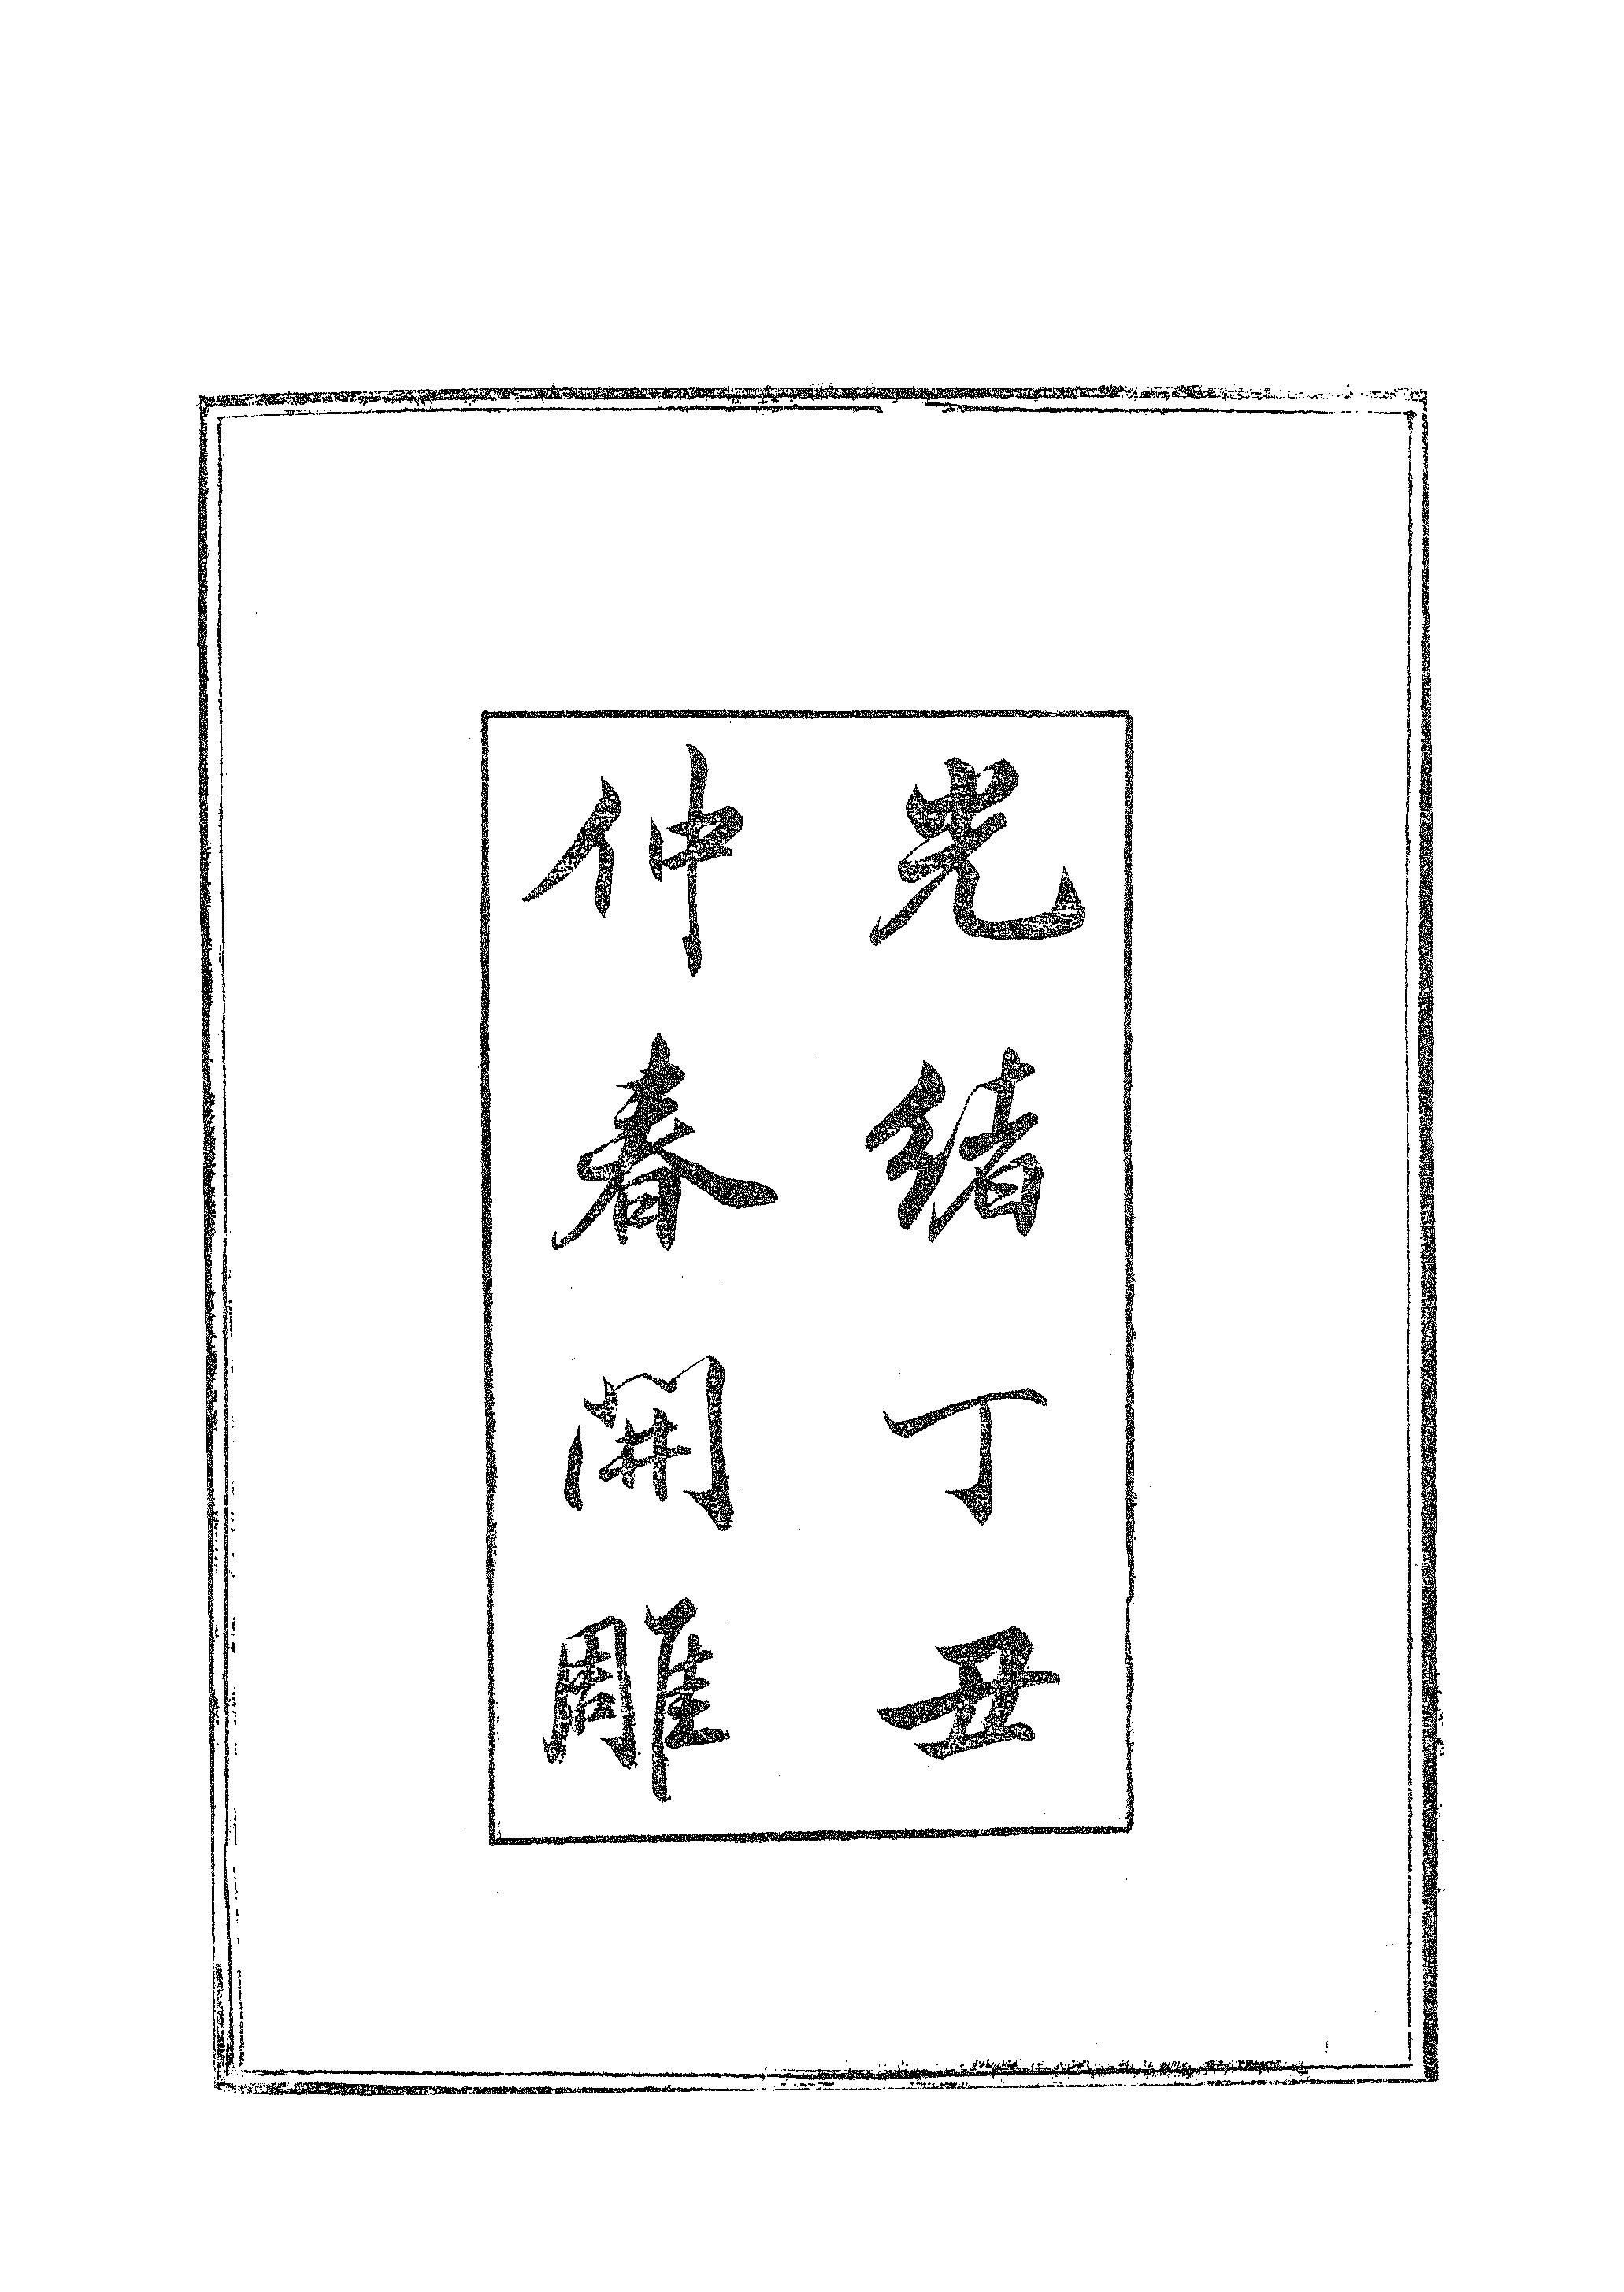 光緒丁丑
仲春開雕